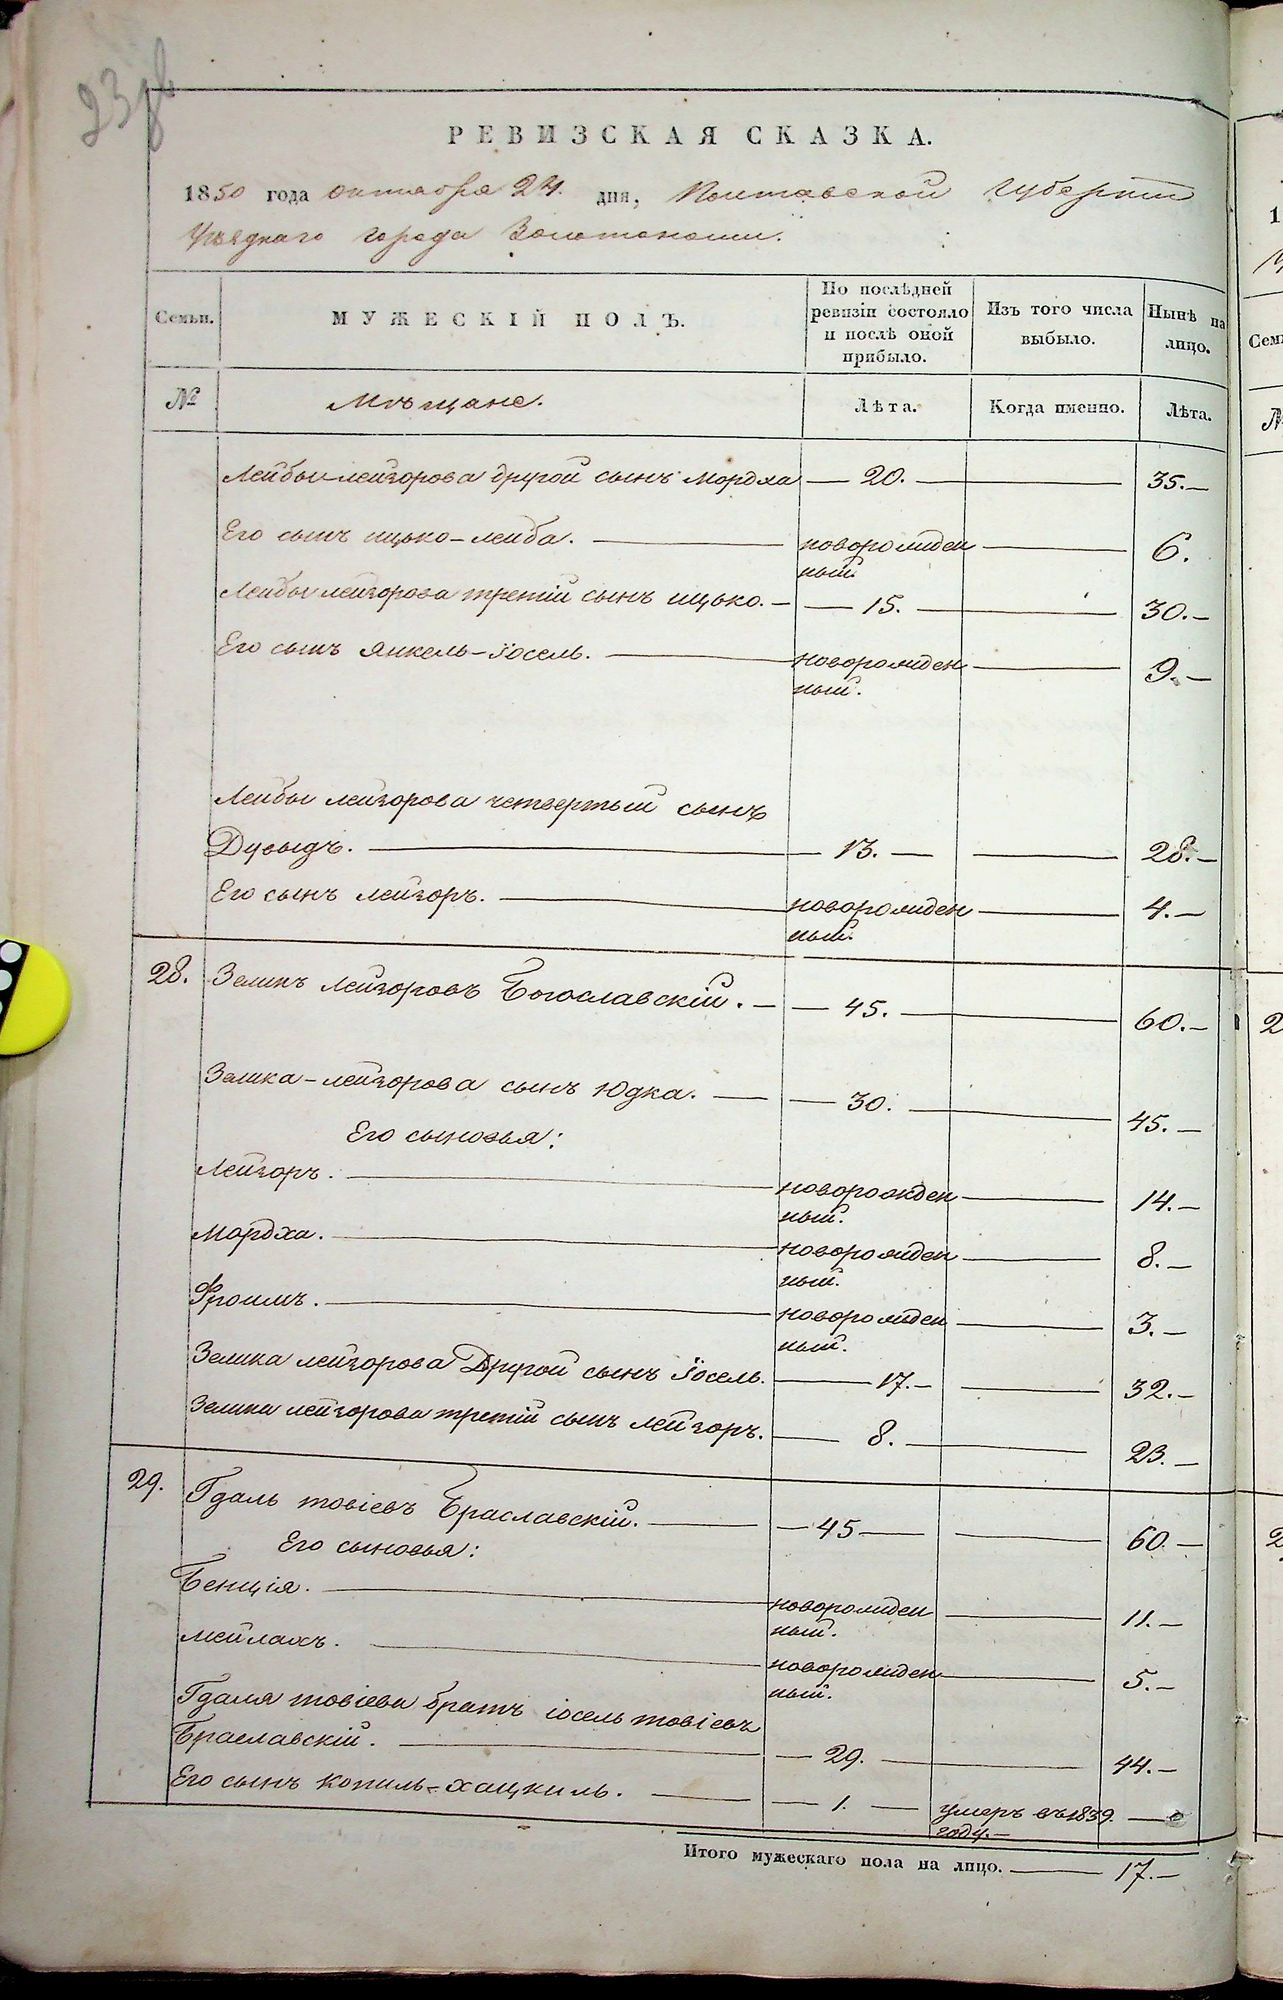 23 об
РЕВИЗСКАЯ СКАЗКА.
1850 года октября 24. дня, Полтавской Губерніи
Уѣзднаго города Золотоноши.
Семьи.
МУЖЕСКІЙ ПОЛЪ.
По послѣдней ревизіи состояло и послѣ оной прибыло.
Изъ того числа выбыло.
Нынѣ на лицо.
№
Мѣщане.
Лѣта.
Когда именно.
Лѣта.
Лейбы-лейзорова другой сынъ Мордха — 20. — 35. —
Его сынъ ицько-лейба. — новорожден 6.
ный.
Лейбы лейзорова третій сынъ ицько. — 15. — 30. —
Его сынъ янкель-іосель. — новорожден 9. —
ный.
Лейбы лейзорова четвертый сынъ
Дувыдъ. — 13. — 28. —
Его сынъ лейзоръ. — новорожден 4. —
ный.
28. Зеликъ Лейзоровъ Богославскій. — 45. — 60. —
Зелика-лейзорова сынъ Юдка. — 30. — 45. —
Его сыновья:
Лейзоръ. — новорожден 14. —
ный.
Мордха. — новорожден 8. —
ный.
Фроимъ. — новорожден 3. —
ный.
Зелика лейзорова Другой сынъ Іосель. — 17. — 32. —
Зелика лейзорова третій сынъ лейзоръ. — 8. — 23. —
29. Гдаль товіевъ Браславскій. — 45 — 60 —
Его сыновья:
Бенція. — новорожден 11. —
ный.
Мейлахъ. — новорожден 5. —
ный.
Гдаля товіева братъ іосель товіевъ
Браславскій. — 29. — 44. —
Его сынъ копиль-хацкиль. — 1. — умеръ въ 1839. —
году. —
Итого мужескаго пола на лицо. — 17. —